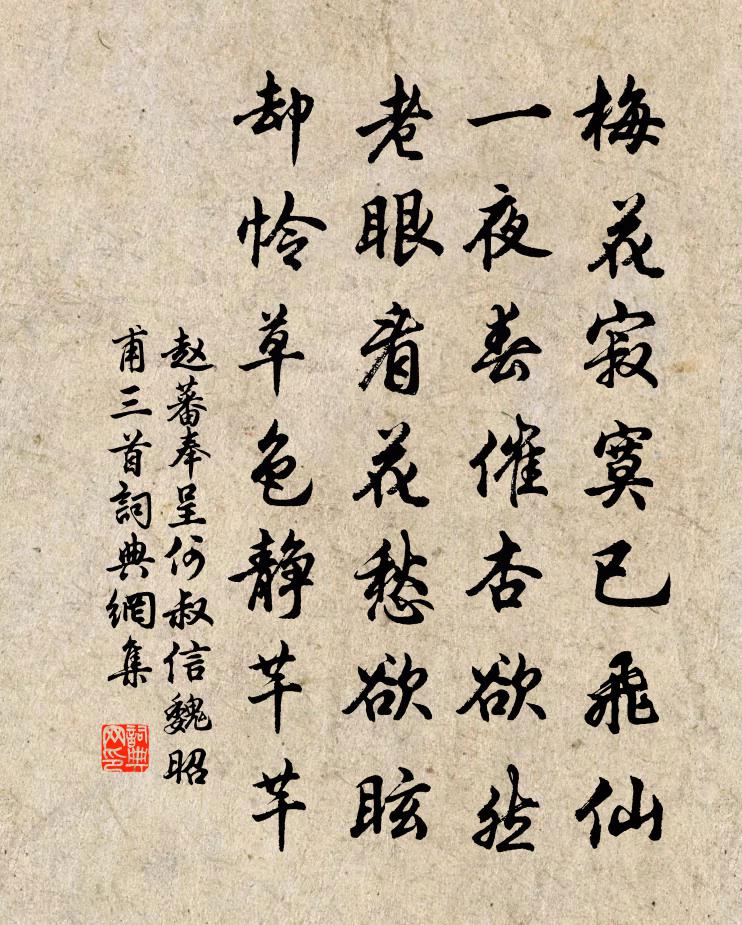 梅花寂寞已飛仙
一夜春催杏欲然
老眼看花愁欲眩
却怜草色静芊芊
赵蕃奉呈何叔信魏昭
甫三首詞典網集
詞典
网印